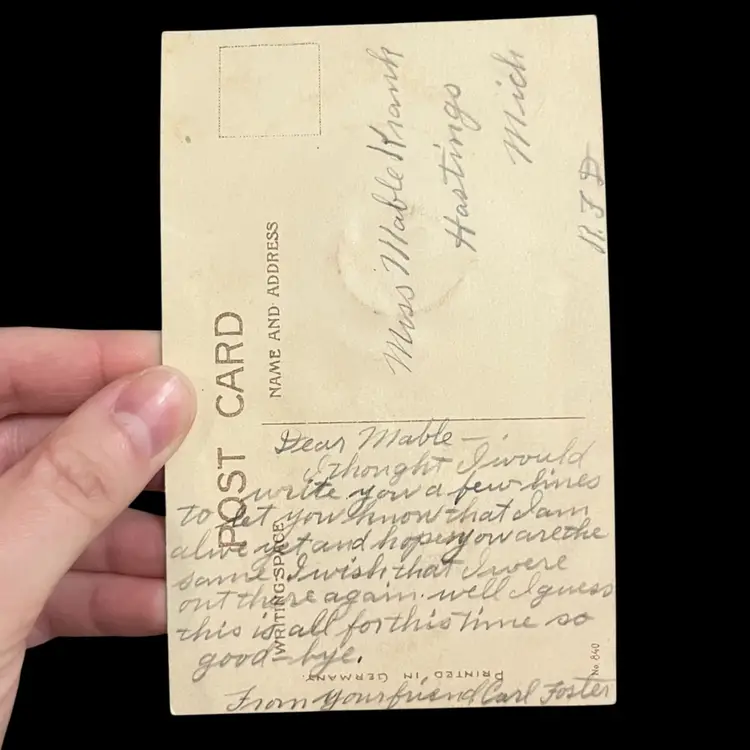 POST CARD
NAME AND ADDRESS
WRITING SPACE
Miss Mable Krank
Hastings
Mich
R.F.D
Dear Mable -
I thought I would
write you a few lines
to let you know that I am
alive yet and hope you are the
same. I wish that I were
out there again. well I guess
this is all for this time so
good-bye.
From your friend, Carl Foster
PRINTED IN GERMANY.
No. 840